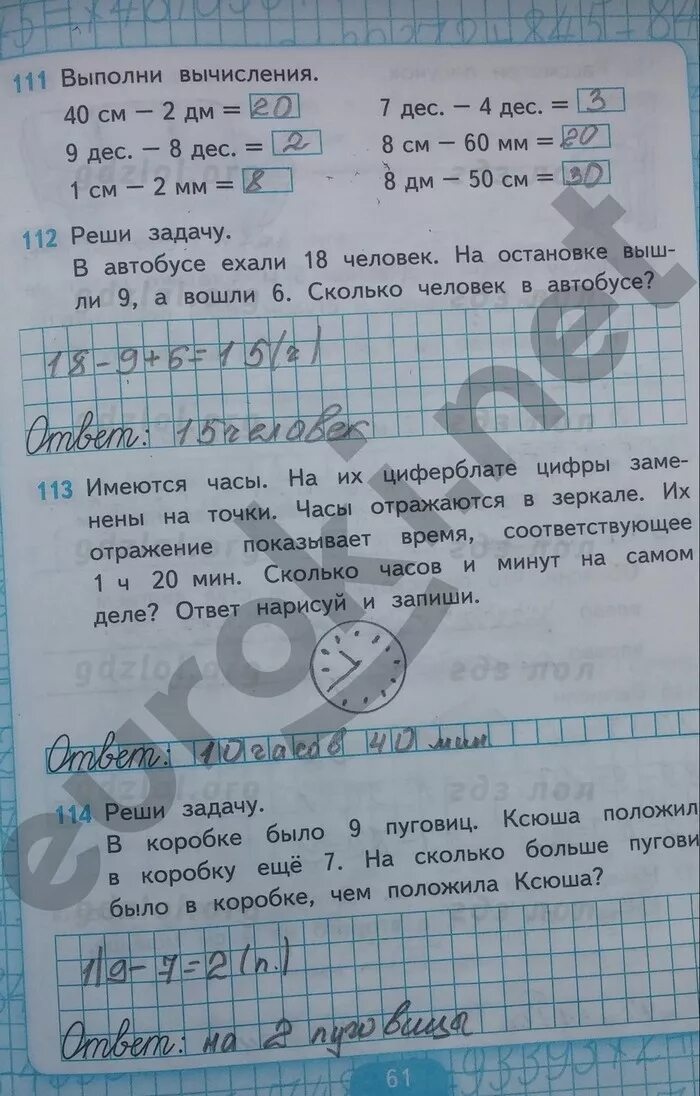 111 Выполни вычисления.
40 см – 2 дм = 20
7 дес. – 4 дес. = 3
9 дес. – 8 дес. = 2
8 см – 60 мм = 20
1 см – 2 мм = 8
8 дм – 50 см = 30
112 Реши задачу.
В автобусе ехали 18 человек. На остановке выш-
ли 9, а вошли 6. Сколько человек в автобусе?
18-9+6=15(ч)
Ответ: 15 человек
113 Имеются часы. На их циферблате цифры заме-
нены на точки. Часы отражаются в зеркале. Их
отражение показывает время, соответствующее
1 ч 20 мин. Сколько часов и минут на самом
деле? Ответ нарисуй и запиши.
Ответ: 10 часов 40 мин
114 Реши задачу.
В коробке было 9 пуговиц. Ксюша положил
в коробку ещё 7. На сколько больше пугови
было в коробке, чем положила Ксюша?
1)9-7=2(п.)
Ответ: на 2 пуговицы
61
euroki.net